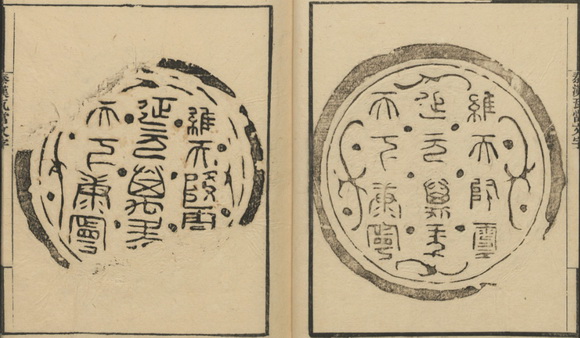 秦漢瓦當文字
維天降靈
延元萬年
天下康寧
維天降靈
延元萬年
天下康寧
秦漢瓦當文字